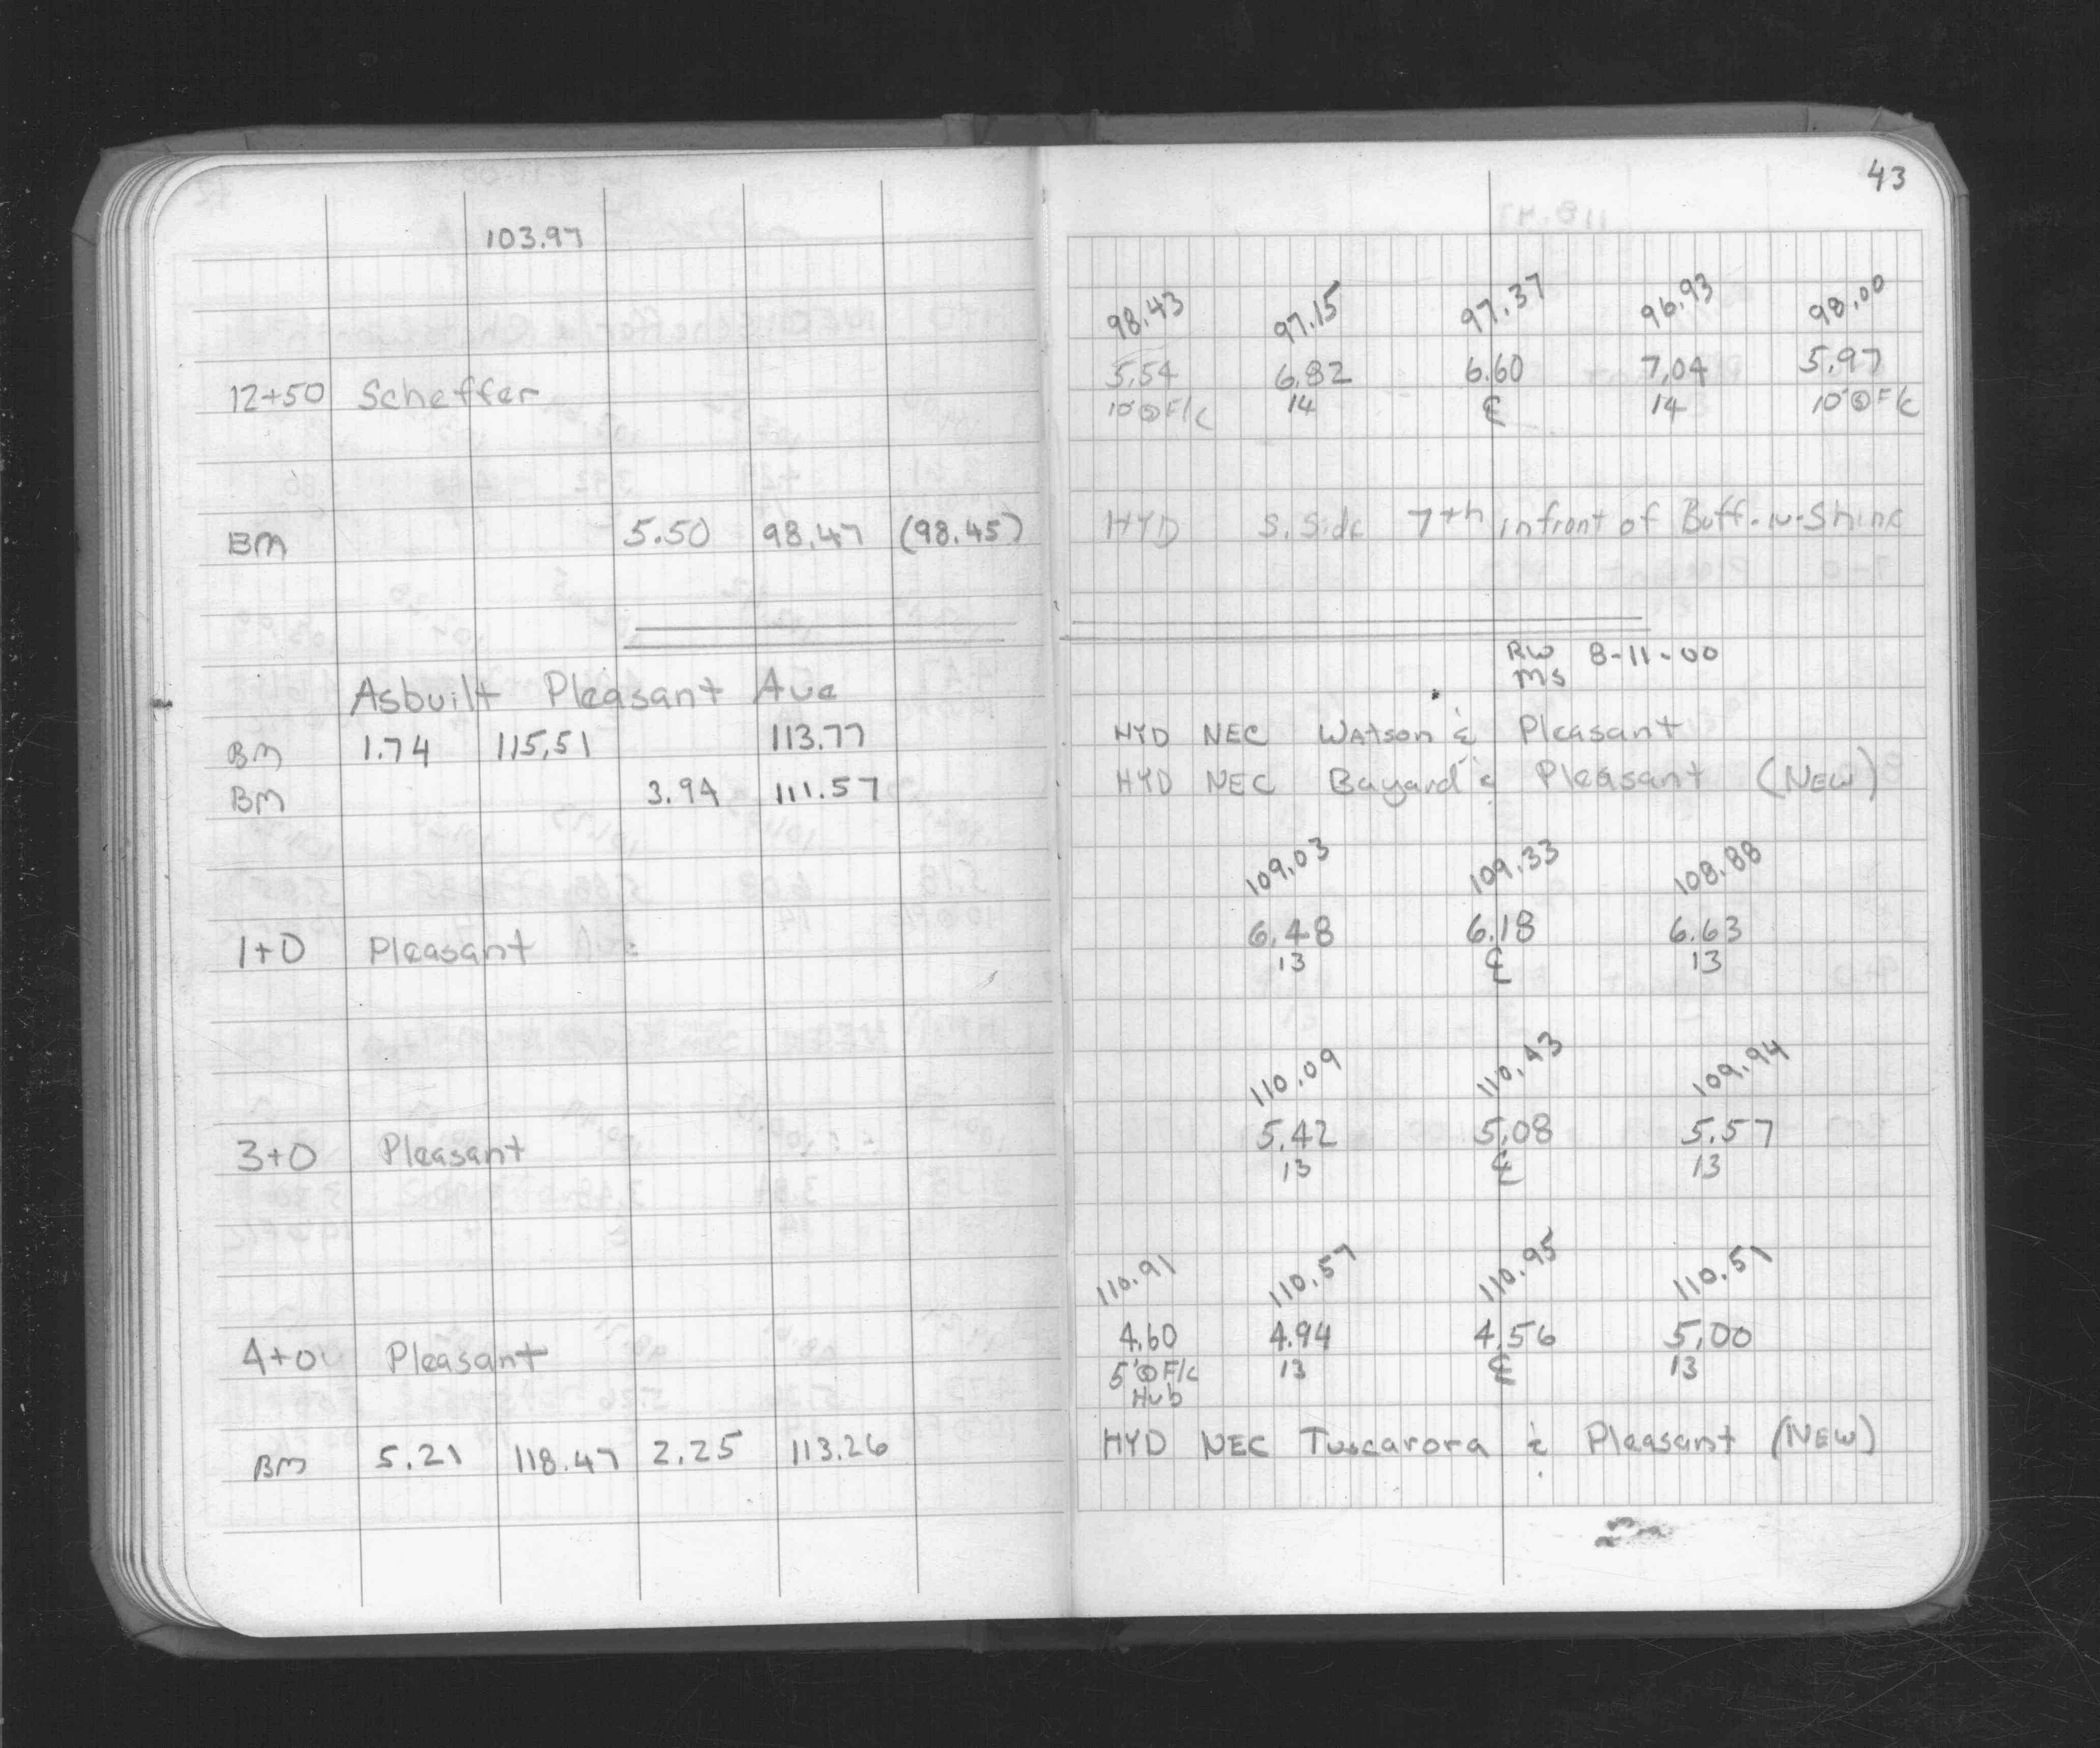 43
103.97
98.43 97.15 97.37 96.93 98.00
5.54 6.82 6.60 7.04 5.97
12+50 Scheffer 10'@F/C 14 ℄ 14 10'@F/C
BM 5.50 98.47 (98.45) HYD S. Side 7th infront of Buff-N-Shine
RW 8-11-00
MS
Asbuilt Pleasant Ave
BM 1.74 115.51 113.77 HYD NEC Watson & Pleasant
BM 3.94 111.57 HYD NEC Bayard & Pleasant (NEW)
109.03 109.33 108.88
6.48 6.18 6.63
1+0 Pleasant 13 ℄ 13
110.09 110.43 109.94
5.42 5.08 5.57
3+0 Pleasant 13 ℄ 13
110.91 110.57 110.95 110.51
4.60 4.94 4.56 5.00
4+0 Pleasant 5'@F/C 13 ℄ 13
Hub
BM 5.21 118.47 2.25 113.26 HYD NEC Tuscarora & Pleasant (NEW)